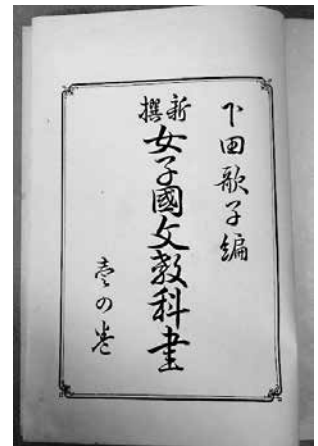 下田歌子編
新撰女子國文教科書
壹の巻